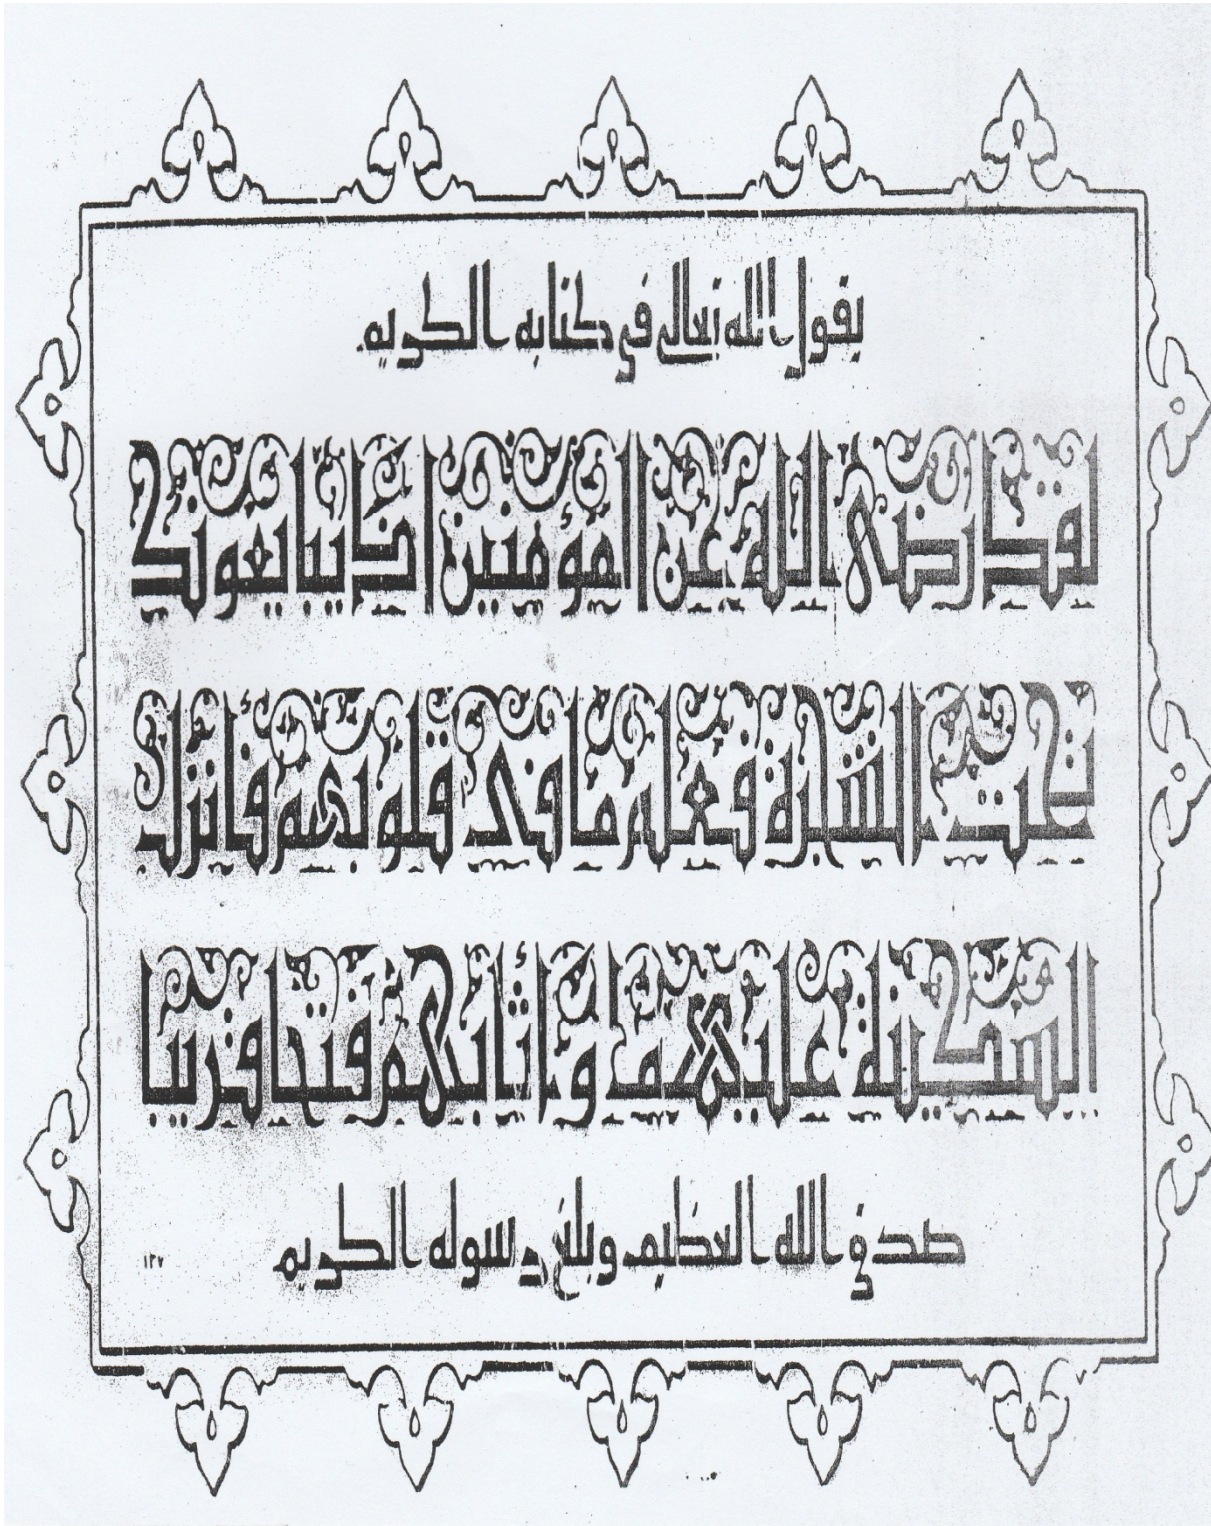 يقول الله تعالى في كتابه الكريم.
لقد رضى الله عن المؤمنين اذ يبايعونك
تحت الشجرة فعلم ما فى قلوبهم فأنزل
السكينة عليهم وأثابهم فتحا قريبا
صدق الله العظيم وبلغ رسوله الكريم
١٣٧